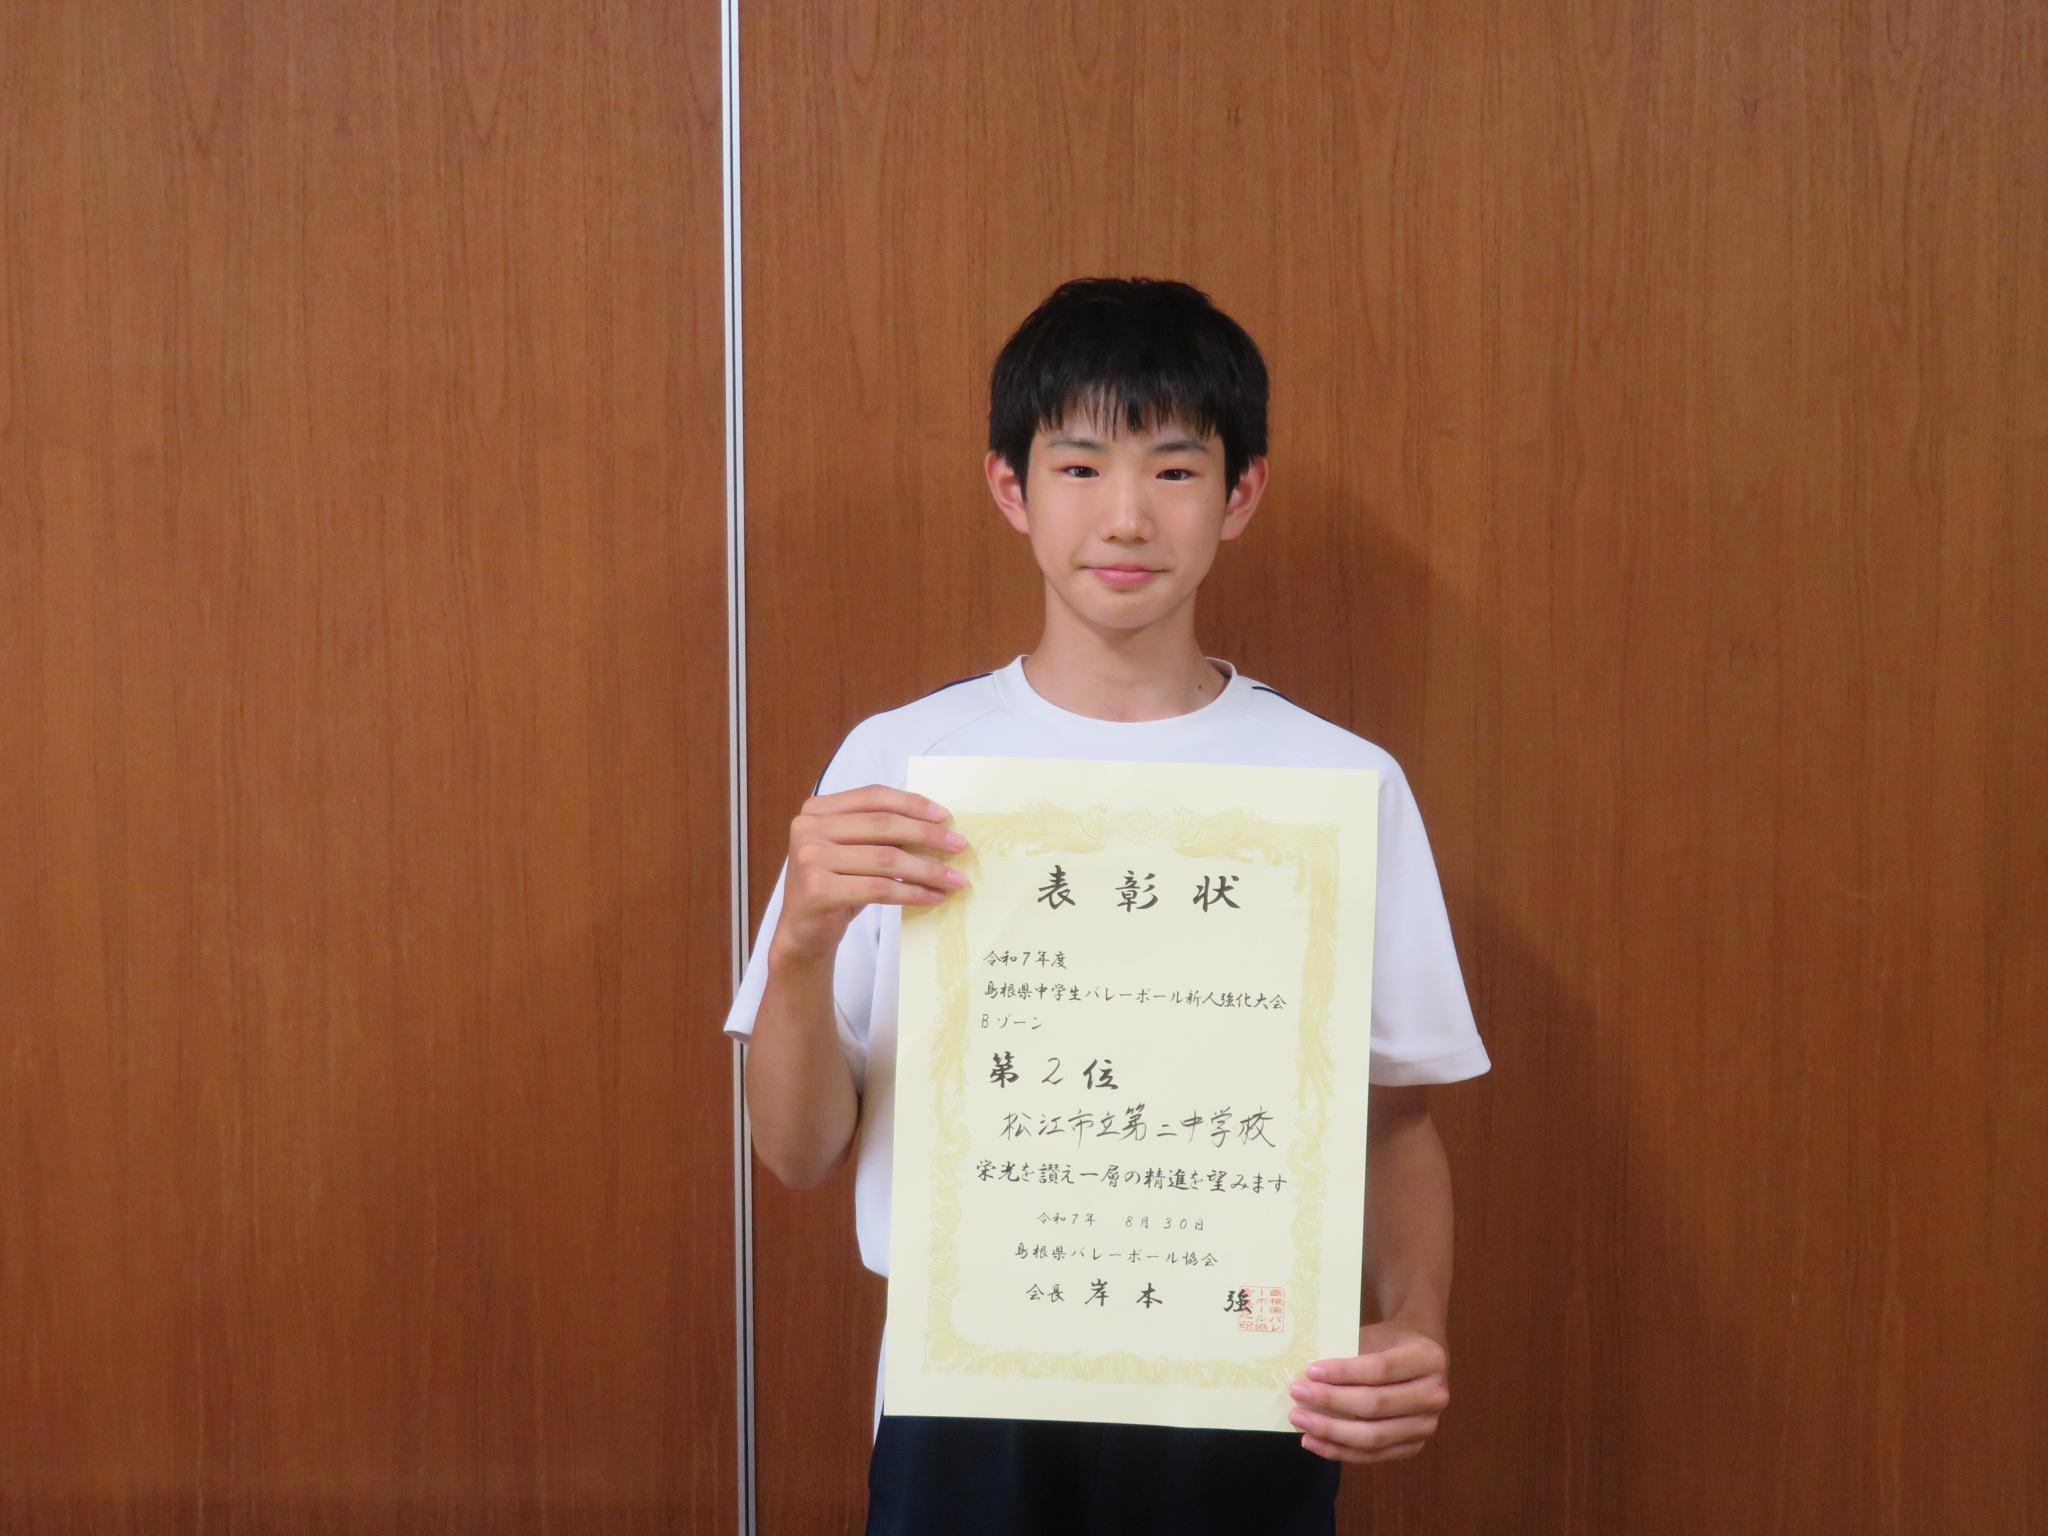 表彰状
令和7年度
島根県中学生バレーボール新人強化大会
Bゾーン
第2位
松江市立第二中学校
栄光を讃え一層の精進を望みます
令和7年 8月30日
島根県バレーボール協会
会長 岸本 強